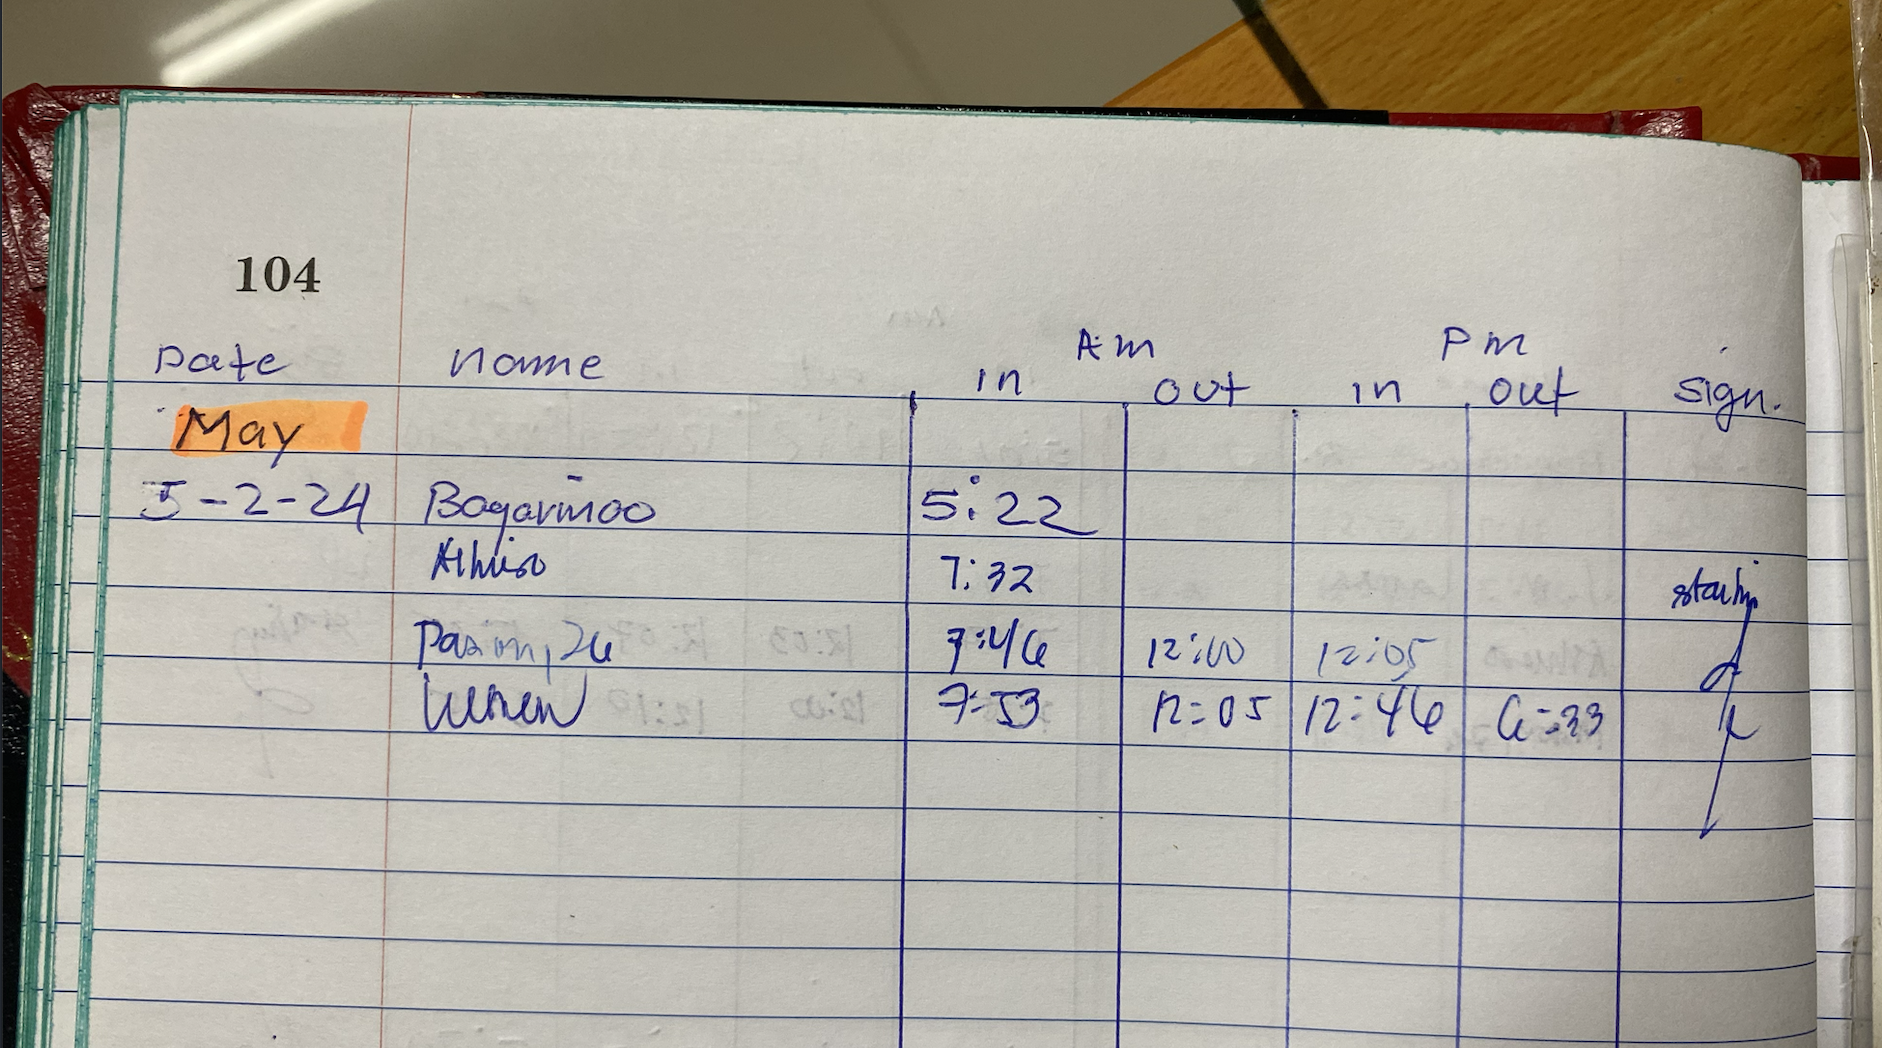 104
Am Pm
Date Name in out in out sign.
May
5-2-24 5:22
7:32
7:46 12:00 12:05
7:53 12:05 12:46 6:33